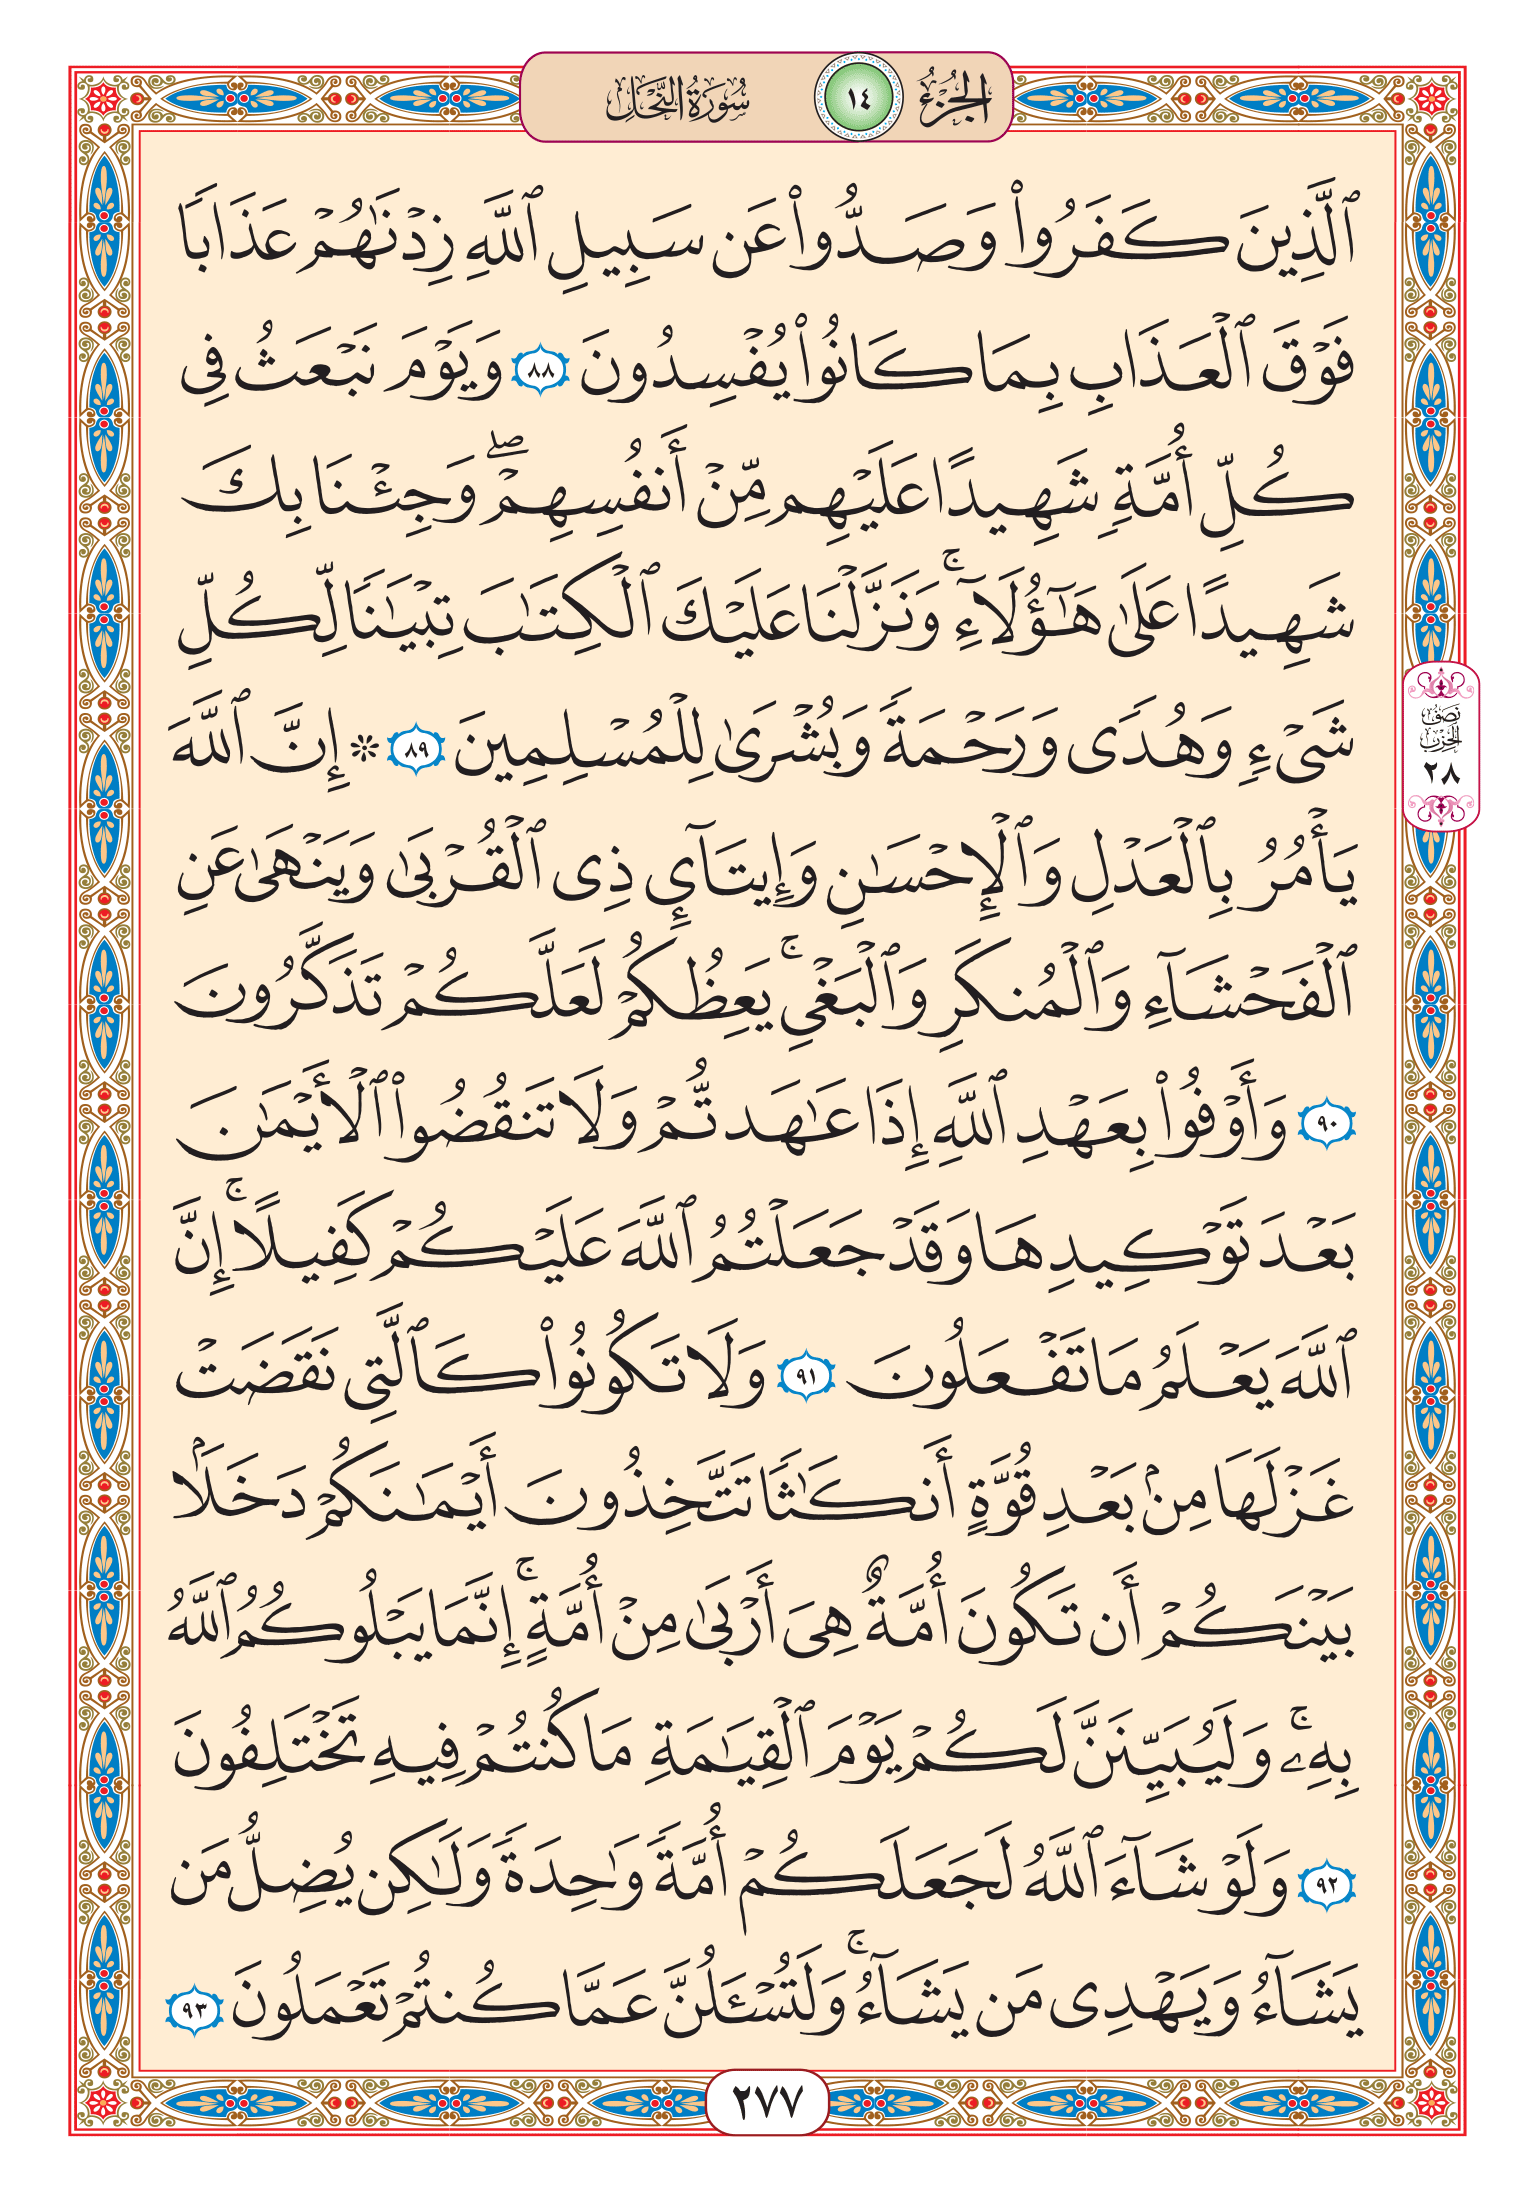 الجزء ١٤ سورة النحل
ٱلَّذِينَ كَفَرُوا۟ وَصَدُّوا۟ عَن سَبِيلِ ٱللَّهِ زِدْنَٰهُمْ عَذَابًا
فَوْقَ ٱلْعَذَابِ بِمَا كَانُوا۟ يُفْسِدُونَ ٨٨ وَيَوْمَ نَبْعَثُ فِى
كُلِّ أُمَّةٍ شَهِيدًا عَلَيْهِم مِّنْ أَنفُسِهِمْ ۖ وَجِئْنَا بِكَ
شَهِيدًا عَلَىٰ هَٰٓؤُلَآءِ ۚ وَنَزَّلْنَا عَلَيْكَ ٱلْكِتَٰبَ تِبْيَٰنًا لِّكُلِّ
شَىْءٍ وَهُدًى وَرَحْمَةً وَبُشْرَىٰ لِلْمُسْلِمِينَ ٨٩ ۞ إِنَّ ٱللَّهَ
يَأْمُرُ بِٱلْعَدْلِ وَٱلْإِحْسَٰنِ وَإِيتَآئِ ذِى ٱلْقُرْبَىٰ وَيَنْهَىٰ عَنِ
ٱلْفَحْشَآءِ وَٱلْمُنكَرِ وَٱلْبَغْىِ ۚ يَعِظُكُمْ لَعَلَّكُمْ تَذَكَّرُونَ
٩٠ وَأَوْفُوا۟ بِعَهْدِ ٱللَّهِ إِذَا عَٰهَدتُّمْ وَلَا تَنقُضُوا۟ ٱلْأَيْمَٰنَ
بَعْدَ تَوْكِيدِهَا وَقَدْ جَعَلْتُمُ ٱللَّهَ عَلَيْكُمْ كَفِيلًا ۚ إِنَّ
ٱللَّهَ يَعْلَمُ مَا تَفْعَلُونَ ٩١ وَلَا تَكُونُوا۟ كَٱلَّتِى نَقَضَتْ
غَزْلَهَا مِنۢ بَعْدِ قُوَّةٍ أَنكَٰثًا تَتَّخِذُونَ أَيْمَٰنَكُمْ دَخَلًۢا
بَيْنَكُمْ أَن تَكُونَ أُمَّةٌ هِىَ أَرْبَىٰ مِنْ أُمَّةٍ ۚ إِنَّمَا يَبْلُوكُمُ ٱللَّهُ
بِهِۦ ۚ وَلَيُبَيِّنَنَّ لَكُمْ يَوْمَ ٱلْقِيَٰمَةِ مَا كُنتُمْ فِيهِ تَخْتَلِفُونَ
٩٢ وَلَوْ شَآءَ ٱللَّهُ لَجَعَلَكُمْ أُمَّةً وَٰحِدَةً وَلَٰكِن يُضِلُّ مَن
يَشَآءُ وَيَهْدِى مَن يَشَآءُ ۚ وَلَتُسْـَٔلُنَّ عَمَّا كُنتُمْ تَعْمَلُونَ ٩٣
نصف
الحزب
٢٨
٢٧٧